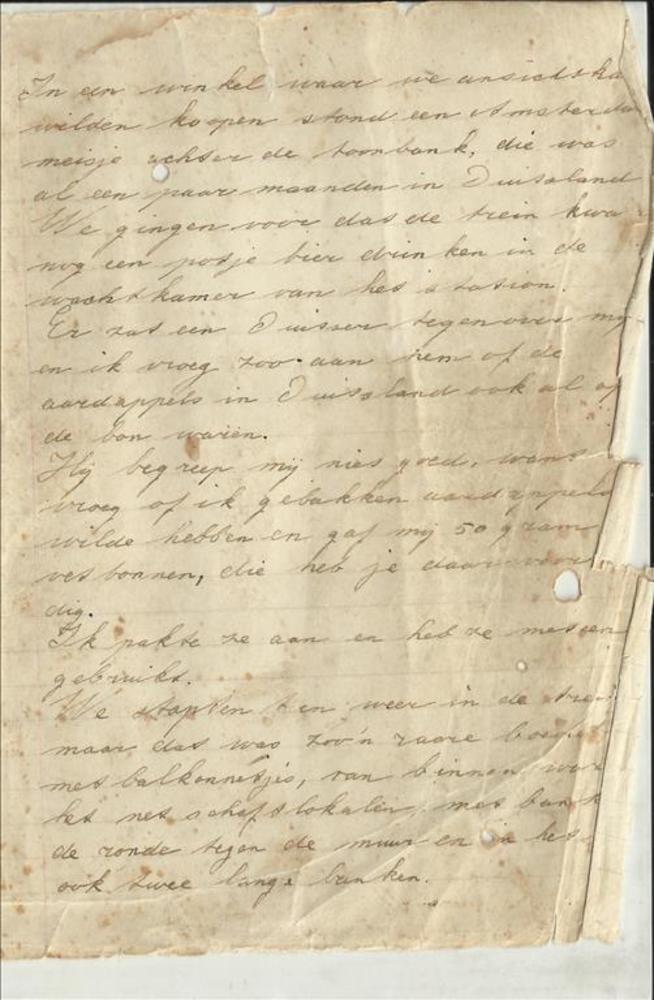 In een winkel waar we ansichtka
wilden koopen stond een Amsterda
meisje achter de toonbank, die was
al een paar maanden in Duitsland
We gingen voor dat de trein kwa
nog een potje bier drinken in de
wachtkamer van het station.
Er zat een Duitser tegenover mij
en ik vroeg zoo aan hem of de
aardappels in Duitsland ook al op
de bon waren.
Hij begreep mij niet goed, want
vroeg of ik gebakken aardappels
wilde hebben en gaf mij 50 gram
vet bonnen, die heb je daar voor
dig.
Ik pakte ze aan en heb ze meteen
gebruikt.
We stapten toen weer in de trein
maar dat was zoo'n raare
met balkonnetjes, van binnen
het net schaftlokalen, met bank
de ronde tegen de muur en in het
ook twee lange banken.